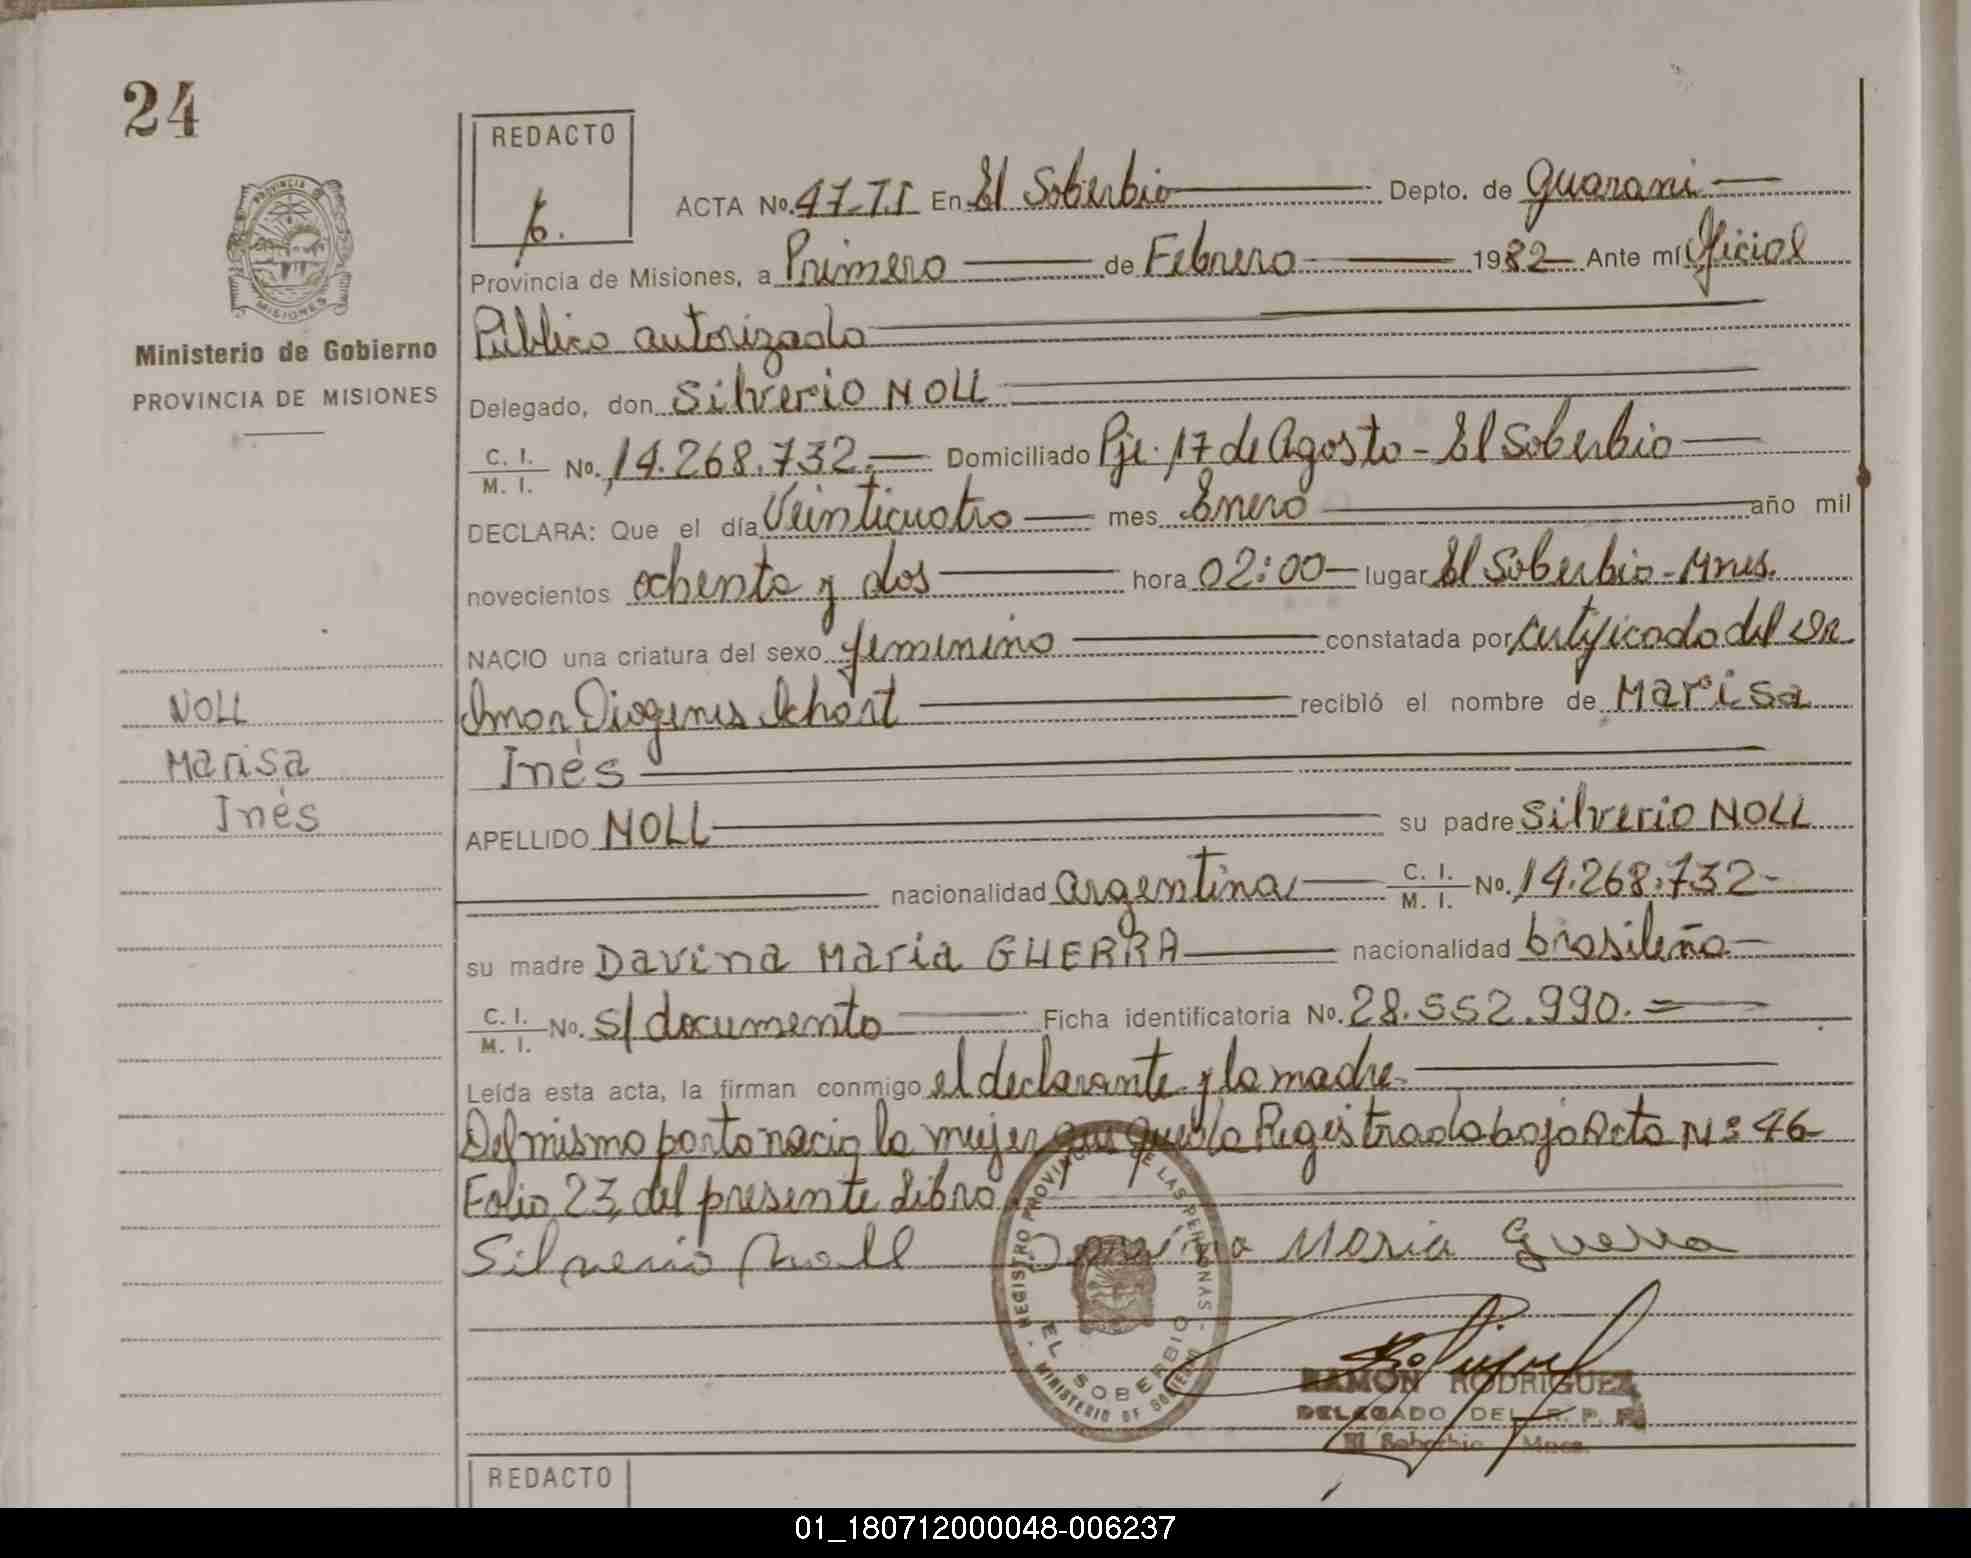 24
PROVINCIA
MISIONES
Ministerio de Gobierno
PROVINCIA DE MISIONES
NOLL
Marisa
Inés
REDACTO
ACTA No. 47-T.I En El Soberbio Depto. de Guarani
Provincia de Misiones, a Primero de Febrero 1982 Ante mí Oficial
Público autorizado
Delegado, don Silverio NOLL
C. I. M. I. No. 14.268.732.- Domiciliado Pje. 17 de Agosto - El Soberbio
DECLARA: Que el día Veinticuatro mes Enero año mil
novecientos ochenta y dos hora 02:00 lugar El Soberbio - Mnes.
NACIO una criatura del sexo femenino constatada por certificado del Dr
Omar Diogenes recibió el nombre de Marisa
Inés
APELLIDO NOLL su padre Silverio NOLL
nacionalidad argentina C. I. M. I. No. 14.268.732-
su madre Davina Maria GUERRA nacionalidad brasileña
C. I. M. I. No. s/documento Ficha identificatoria No. 28.552.990.=
Leída esta acta, la firman conmigo el declarante y la madre.
Del mismo parto nacio la mujer que queda Registrada bajo Acta Nº 46
Folio 23, del presente Libro.
Silverio Noll Davina Maria Guerra
REGISTRO PROVINCIAL DE LAS PERSONAS - MINISTERIO DE GOBIERNO -
EL SOBERBIO
RAMON RODRIGUEZ
DELEGADO DEL R. P. P.
El Soberbio Mnes.
REDACTO
01_180712000048-006237